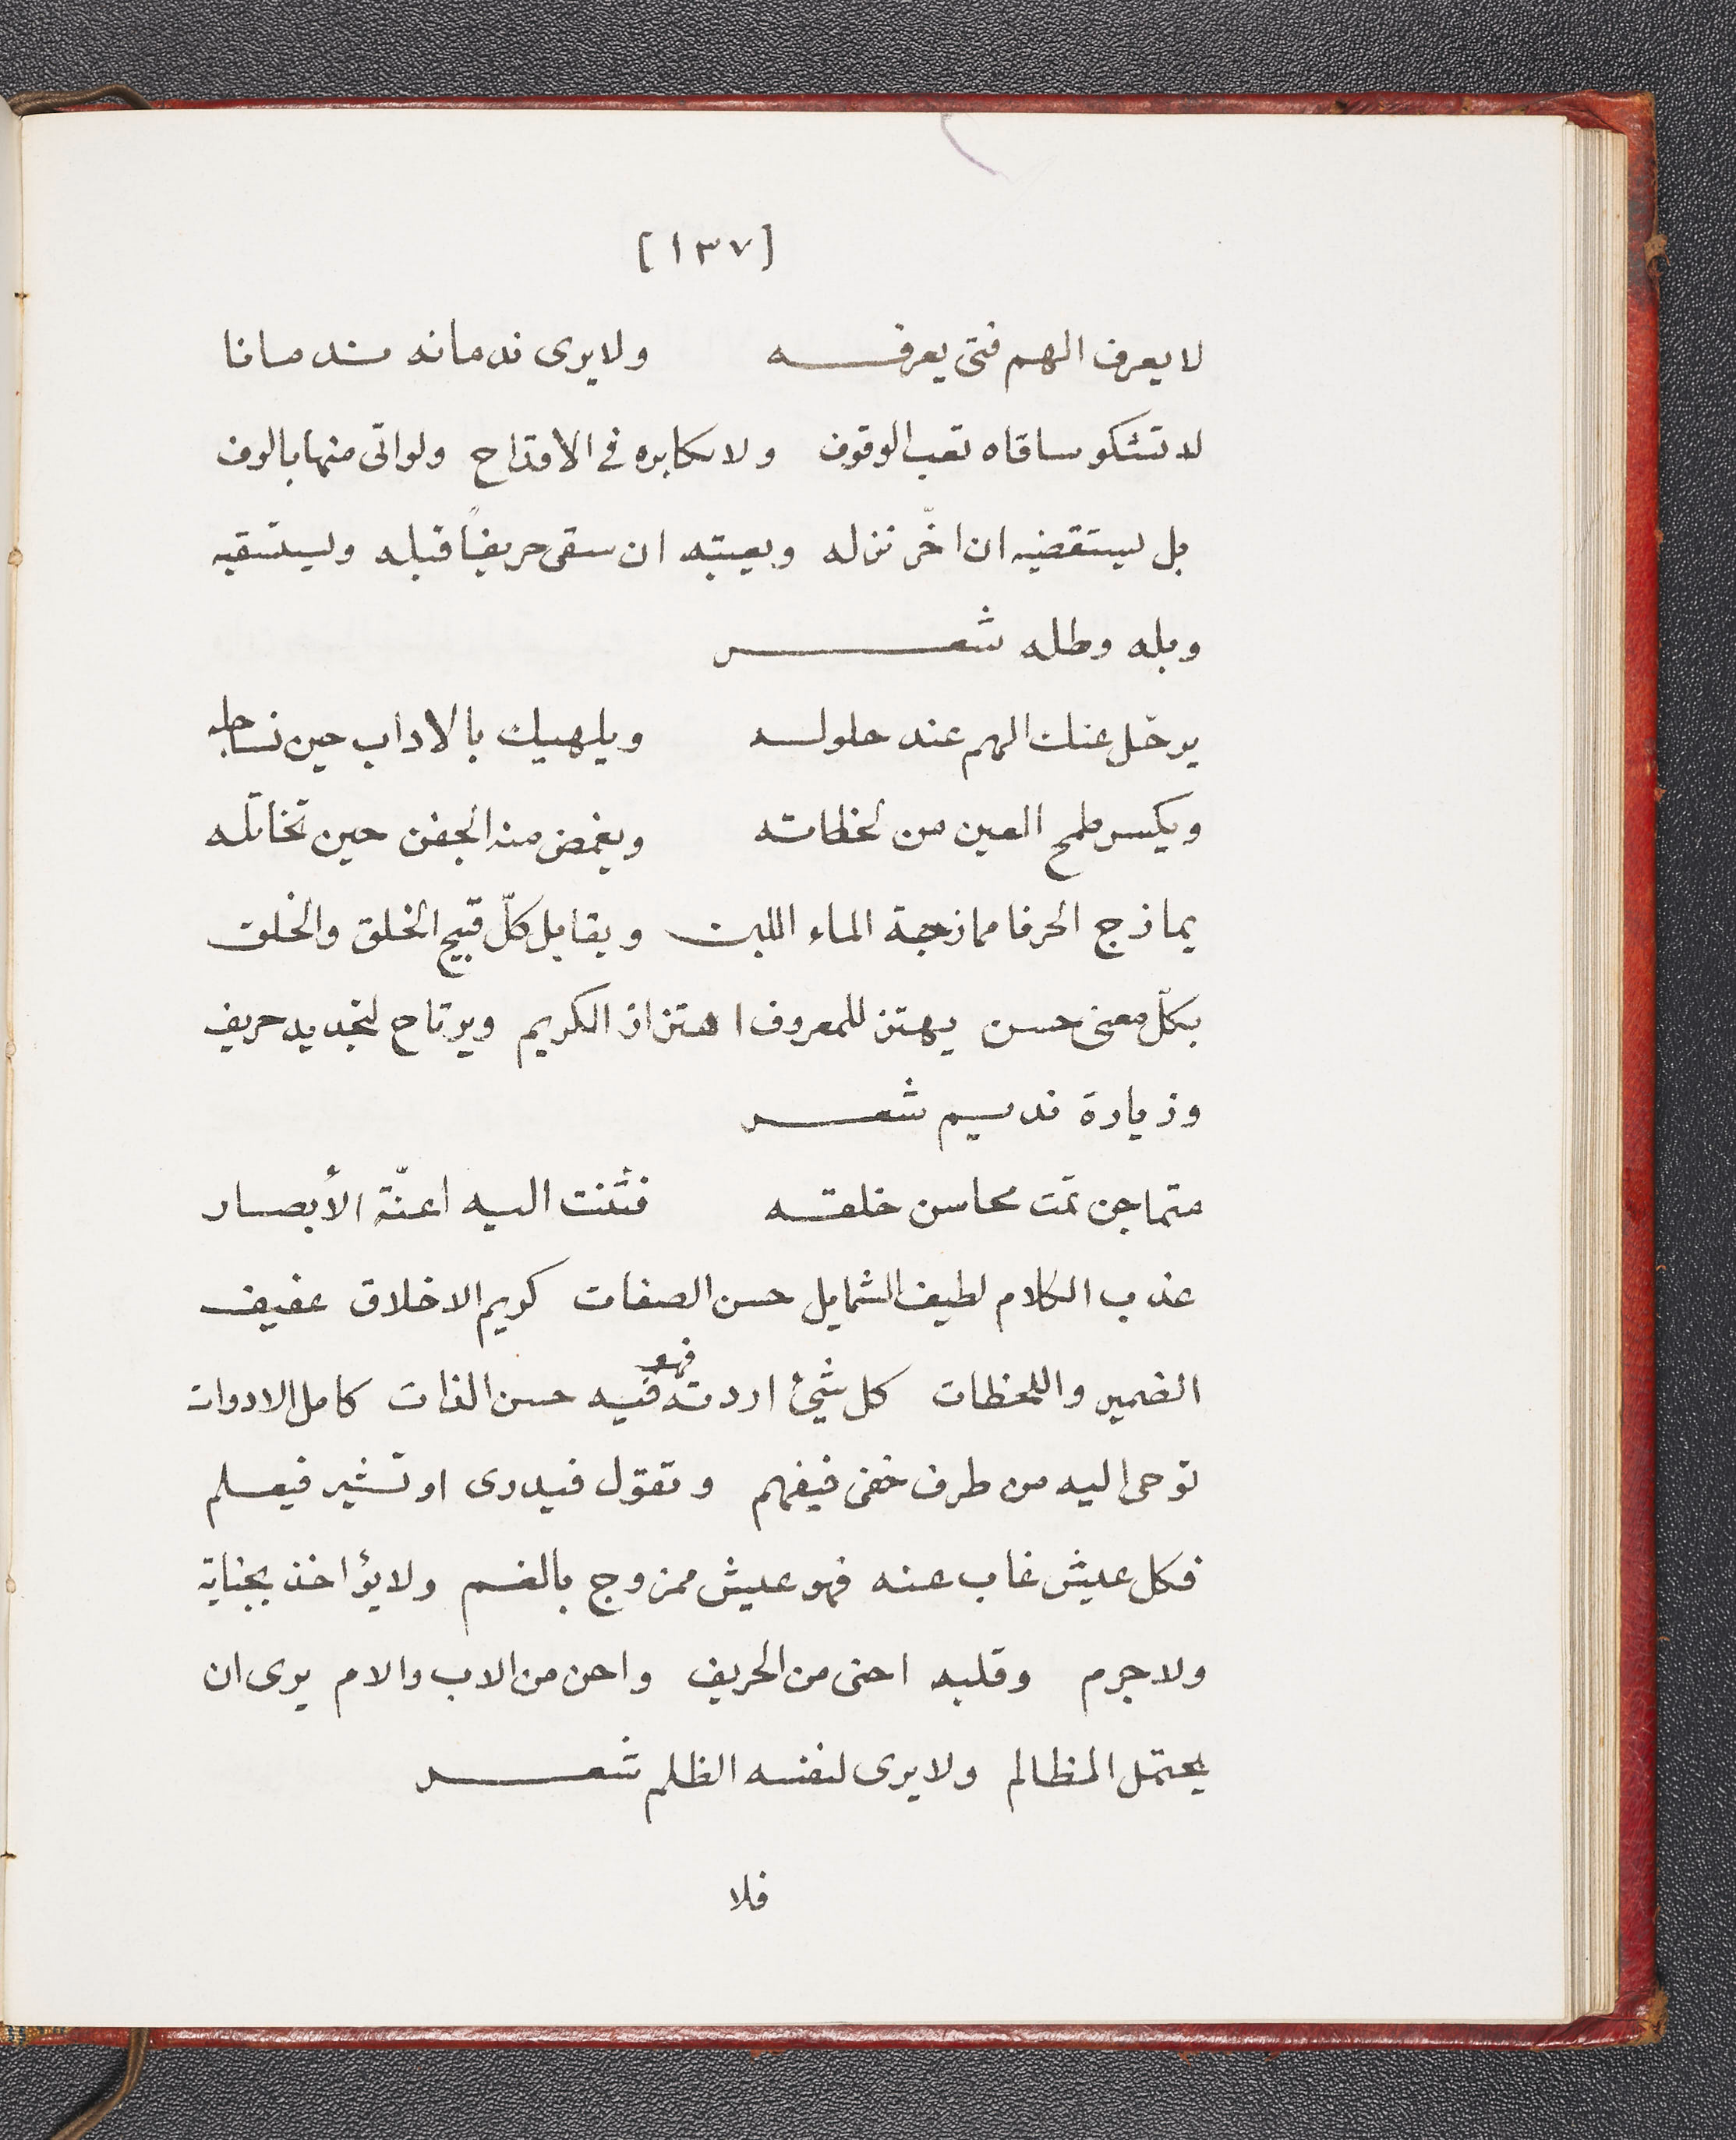 [١٣٧]
لا يعرف الهم فتى يعرفه ولا يرى ندمانه ندمانا
لا تشكو ساقاه تعب الوقوف ولا يكابره في الاقداح ولو اتى منها بالوف
بل يستقضيه ان اخّر نزله ويعيبه ان سقى حريفاً قبله ويستقيه
وبله وطله شعر
يرحّل عنك الهم عند حلوله ويلهيك بالاداب حين تساجله
ويكسر طمح العين من لحظاته ويغمض منه الجفن حين تخاتله
يمازج الحرفا ممازجة الماء اللبن ويقابل كلّ قبيح الخلق والخلق
بكلّ معنى حسن يهتز للمعروف اهتزاز الكريم ويرتاح لتجديد حريف
وزيارة نديم شعر
متماجن تمت محاسن خلقه فثنت اليه اعنّة الأبصار
عذب الكلام لطيف الشمايل حسن الصفات كريم الاخلاق عفيف
الضمير واللحظات كل شئ اردته فهو فيه حسن الذات كامل الادوات
توحى اليه من طرف خفى فيفهم وتقوّل فيدرى او تشير فيعلم
فكل عيش غاب عنه فهو عيش ممزوج بالغم ولا يؤاخذ بجناية
ولا جرم وقلبه احنى من الحريف واحن من الاب والام يرى ان
يحتمل المظالم ولا يرى لنفسه الظلم شعر
فلا